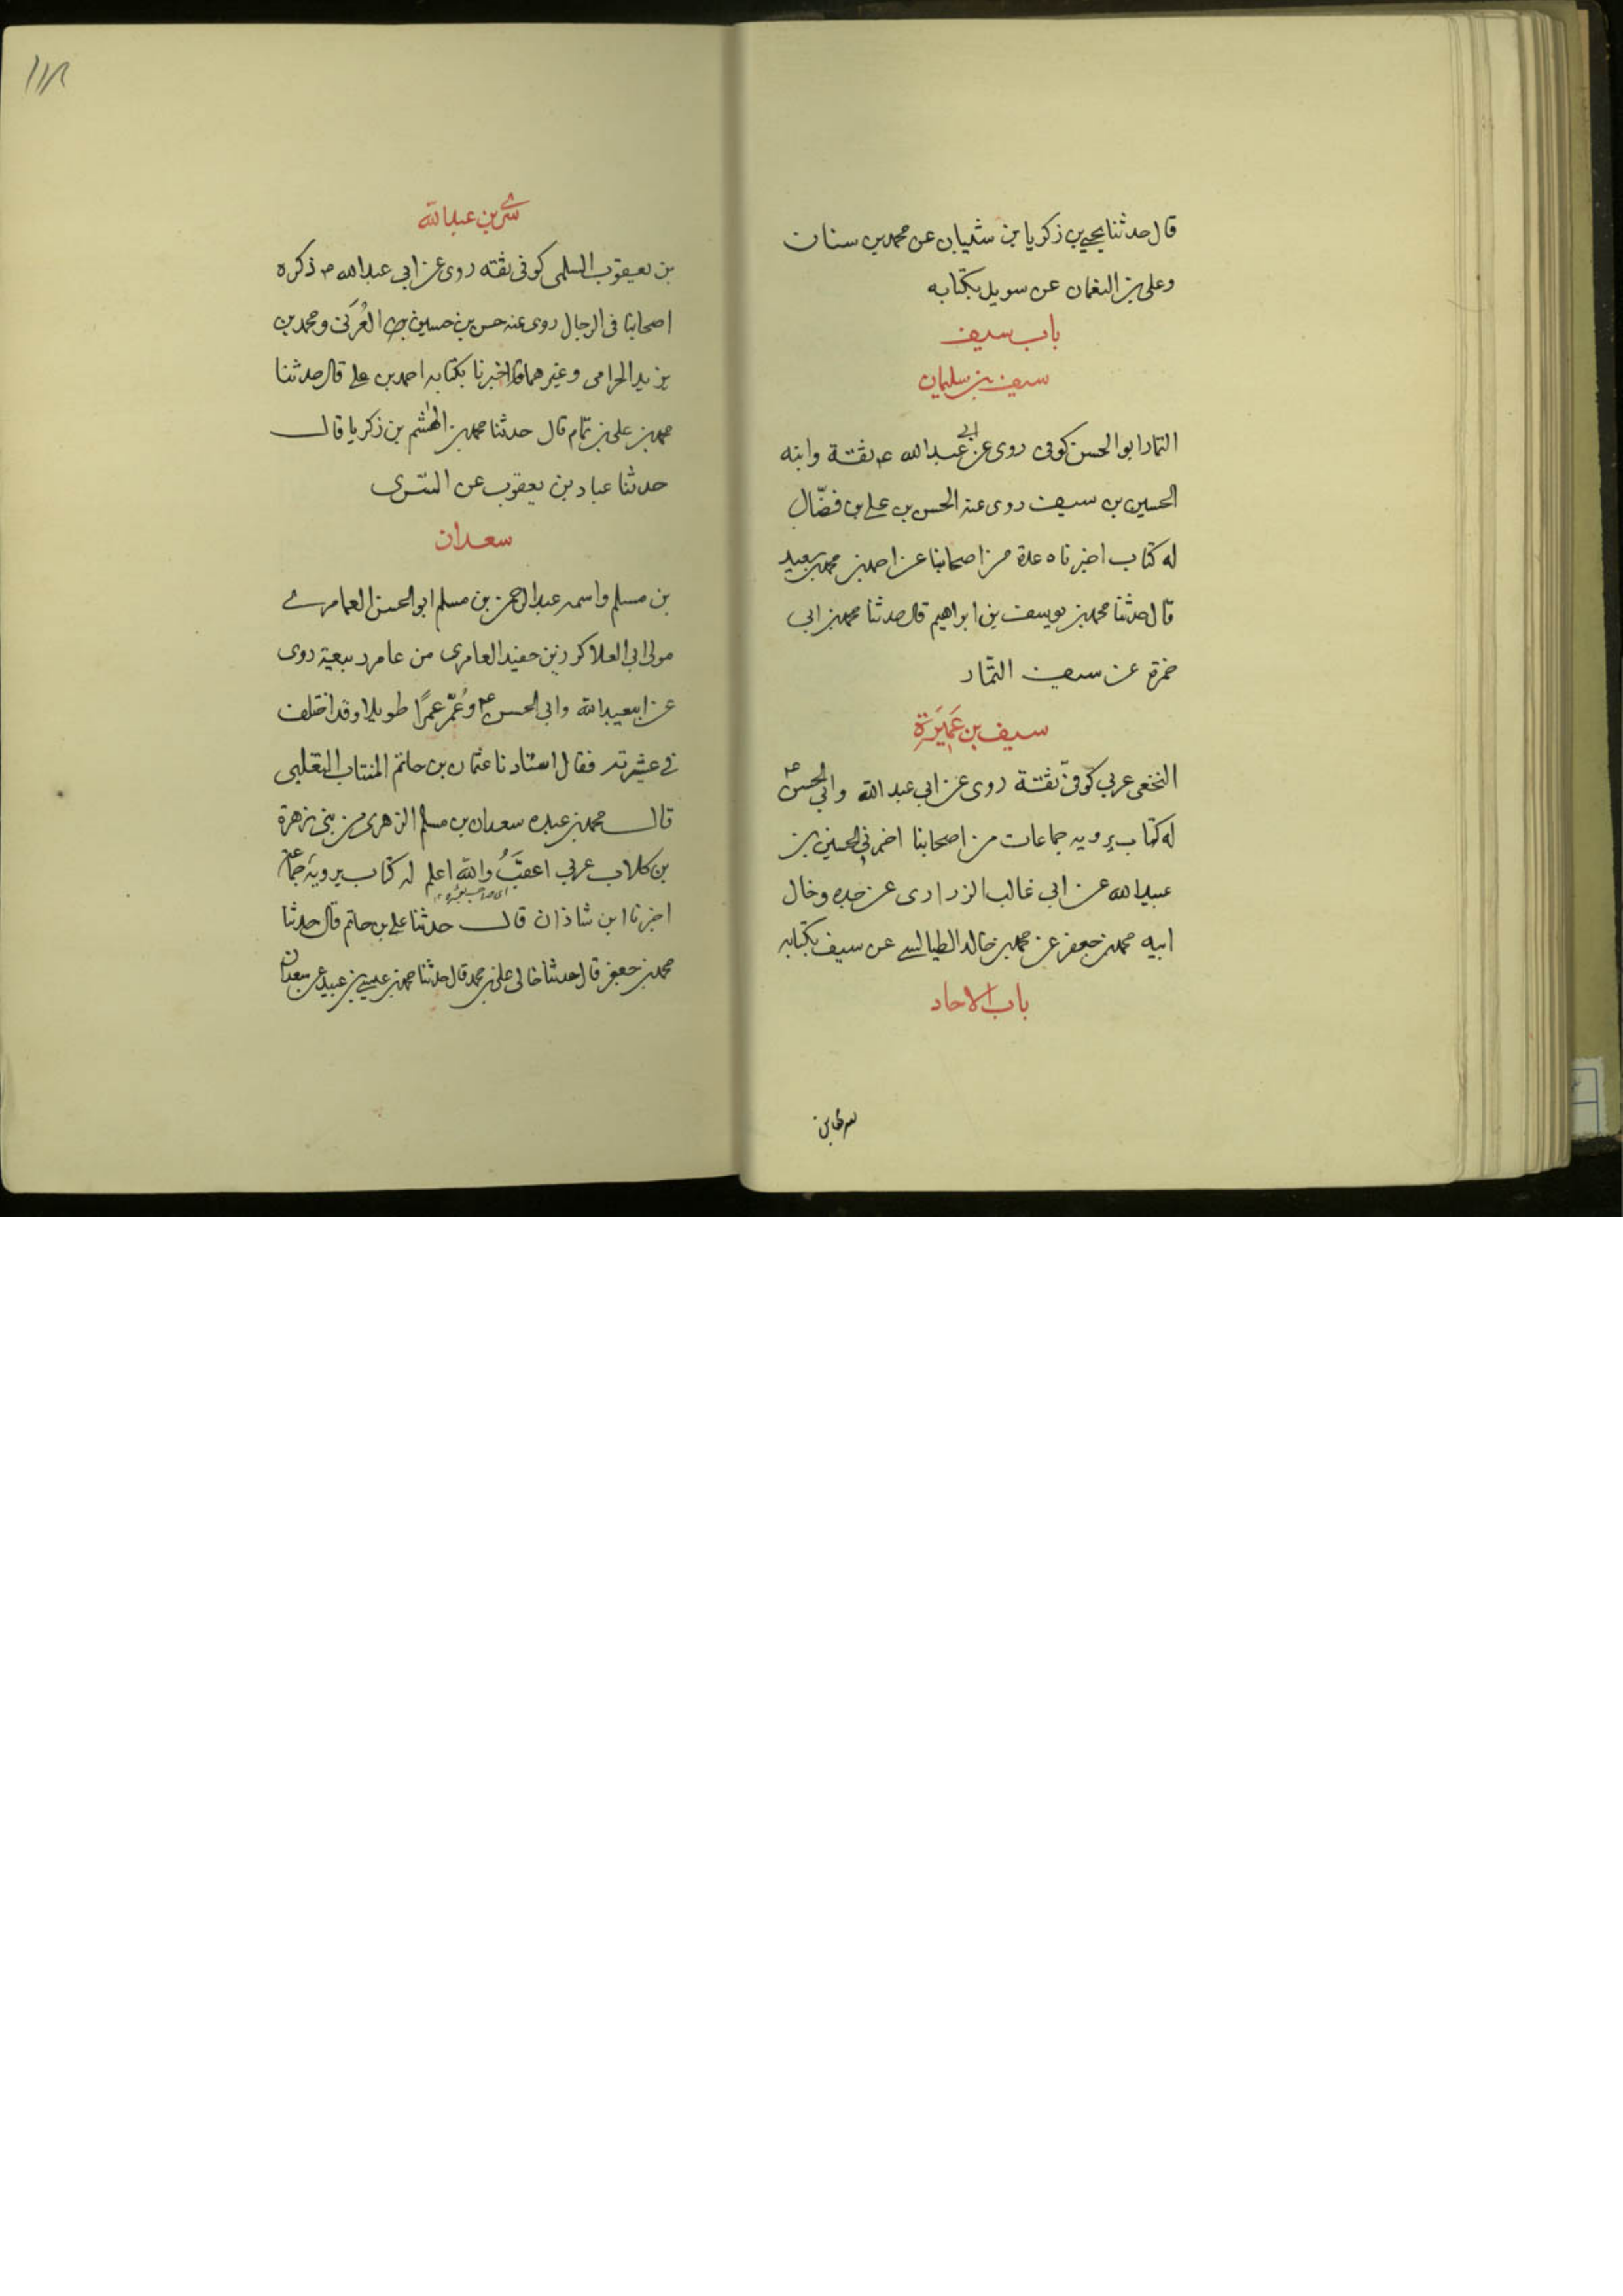 قال حدثنا يحيى بن زكريا بن شيبان عن محمد بن سنان
وعلى بن النعمان عن سويد بكتابه
باب سيف
سيف بن سليمان
التمار ابو الحسن كوفى روى عن ابى عبد الله ع ثقة وابنه
الحسين بن سيف روى عنه الحسن بن على بن فضّال
له كتاب اخبرناه عدة من اصحابنا عن احمد بن محمد بن سعيد
قال حدثنا محمد بن يوسف بن ابراهيم قال حدثنا محمد بن ابى
حمزة عن سيف التمّار
سيف بن عَمِيَرة
النخعى عربى كوفىّ ثقة روى عن ابى عبد الله وابى الحسن ع
له كتاب يرويه جماعات من اصحابنا اخبرنى الحسين بن
عبيد الله عن ابى غالب الزرارى عن جده وخال
ابيه محمد بن جعفر عن محمد بن خالد الطيالسى عن سيف بكتابه
باب الاحاد
سرى بن عبد الله
بن يعقوب السلمى كوفى ثقه روى عن ابى عبد الله ع ذكره
اصحابنا فى الرجال روى عنه حسن بن حسين العُرَنى ومحمد بن
يزيد الحرامى وغيرهما اخبرنا بكتابه احمد بن على قال حدثنا
محمد بن على بن تمام قال حدثنا محمد بن الهٰشم بن زكريا قال
حدثنا عباد بن يعقوب عن السّرى
سعدان
بن مسلم واسمه عبد الرحمن بن مسلم ابو الحسن العامرى
مولى ابى العلا كرز بن حفيد العامرى من عامر ربيعة روى
عن ابى عبد الله وابى الحسن ع وعُمّر عمرًا طويلا وقد اختلف
فى عشيرته فقال استادنا عثمان بن حاتم المنتاب التغلبى
قال محمد بن عبده سعدان بن مسلم الزهرى من بنى زهرة
بن كلاب عربى اعقبَ والله اعلم له كتاب يرويه جماعة
اخبرنا ابن شاذان قال حدثنا على بن حاتم قال حدثنا
محمد بن جعفر قال حدثنا خالى على بن محمد قال حدثنا محمد بن عيسى بن عبيد عن سعدان